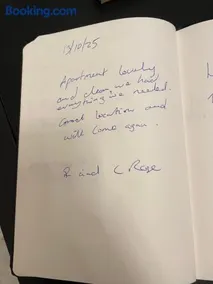 Booking.com
13/10/25
Apartment lovely
and clean, we had
everything we needed.
Great location and
will come again.
and C. Rose